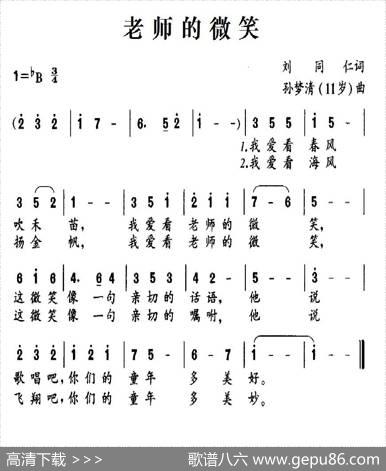 老师的微笑
1=♭B 3/4
刘同仁词
孙梦清(11岁)曲
(2 3 2 | 1 7 - | 6. 52 | 1 - -) | 3 5 5 | 1 5 - |
1.我爱看 春风
2.我爱看 海风
3 5 2 | 1 - - | 3 5 1 | 2 1 1 | 7 - 6 | 5 - - |
吹禾苗, 我爱看 老师的 微 笑,
扬金帆, 我爱看 老师的 微 笑,
6 1 6 | 4. 64 | 3 5 1 | 4 3 2 | 5 - - | 3 - - |
这微笑 像一句 亲切的 话语, 他 说
这微笑 像一句 亲切的 嘱咐, 他 说
2 3 2 | 1 2 1 | 7 5 - | 6 - 7 | 1 - - | 1 - - ‖
歌唱吧,你们的 童年 多 美 好。
飞翔吧,你们的 童年 多 美 妙。
高清下载 >>> 歌谱八六 www.gepu86.com